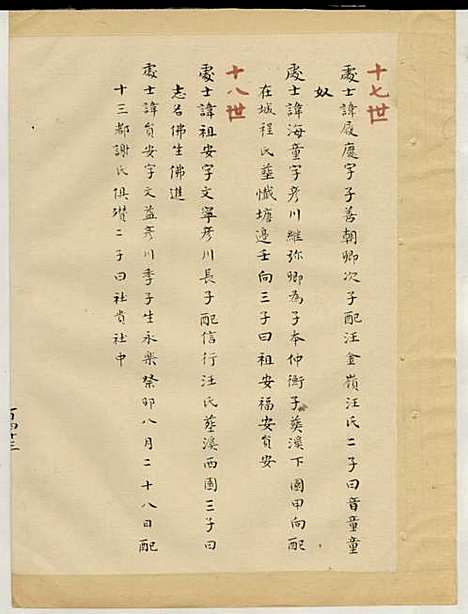 十七世
處士諱辰應字子善朝卿次子配汪金嶺汪氏二子曰音童童
奴
處士諱海童字彥川繼弥卿為子本仲衡子葬溪下園甲向配
在城程氏葬懺塘邉壬向三子曰祖安福安貟安
十八世
處士諱祖安字文寧彥川長子配信行汪氏葬溪西園三子曰
志名佛生佛進
處士諱貟安字文益彥川季子生永樂癸卯八月二十八日配
十三都謝氏俱瓚二子曰社貴社中